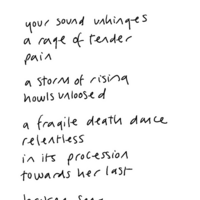 your sound unhinges
a rage of tender
pain
a storm of rising
howls unloosed
a fragile death dance
relentless
in its procession
towards her last